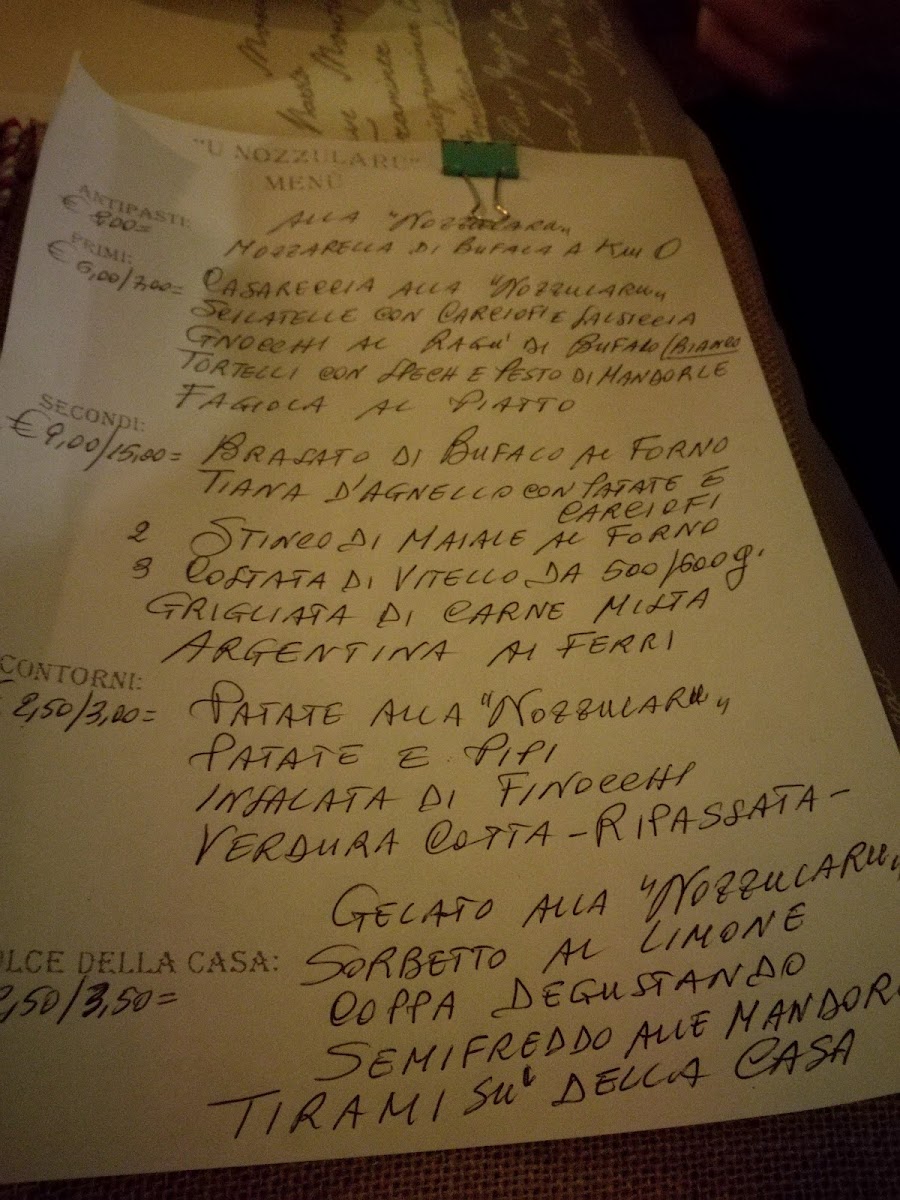 "U NOZZULARU"
MENÙ
ANTIPASTI:
€ 8,00= ALLA "NOZZULARU"
MOZZARELLA DI BUFALA A KM 0
PRIMI:
€ 6,00/7,00= CASARECCIA ALLA "NOZZULARU"
SCILATELLE CON CARCIOFI E SALSICCIA
GNOCCHI AL RAGU' DI BUFALO/BIANCO
TORTELLI CON SPECH E PESTO DI MANDORLE
FAGIOLA AL PIATTO
SECONDI:
€ 9,00/15,00= BRASATO DI BUFALO AL FORNO
TIANA D'AGNELLO CON PATATE E
CARCIOFI
2 STINCO DI MAIALE AL FORNO
3 COSTATA DI VITELLO DA 500/600g.
GRIGLIATA DI CARNE MISTA
ARGENTINA AI FERRI
CONTORNI:
€ 2,50/3,00= PATATE ALLA "NOZZULARU"
PATATE E PIPI
INSALATA DI FINOCCHI
VERDURA COTTA-RIPASSATA-
GELATO ALLA "NOZZULARU"
OLCE DELLA CASA: SORBETTO AL LIMONE
2,50/3,50= COPPA DEGUSTANDO
SEMIFREDDO ALLE MANDOR
TIRAMI SU' DELLA CASA